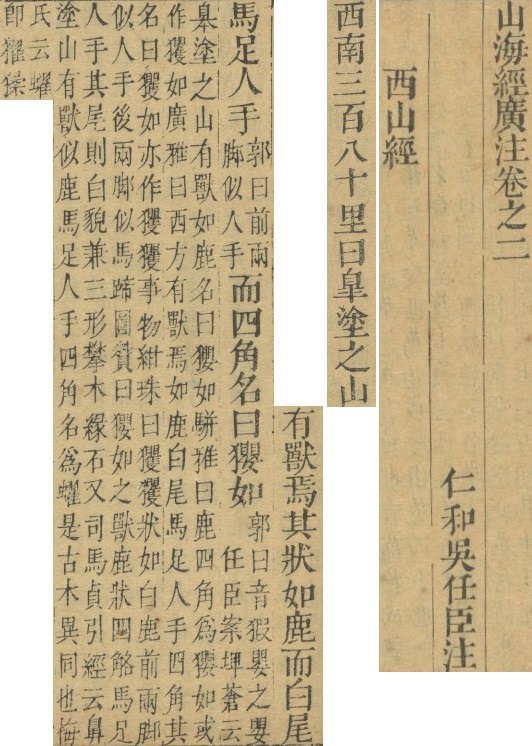 山海經廣注卷之二
仁和吳任臣注
西山經
西南三百八十里曰皐塗之山
有獸焉其狀如鹿而白尾
馬足人手
郭曰前兩
脚似人手
而四角名曰𤣎如
郭曰音猳嬰之嬰
任臣案埤蒼云
臯塗之山有獸如鹿名曰𤣎如駢雅曰鹿四角爲𤣎如或
作玃如廣雅曰西方有獸焉如鹿白尾馬足人手四角其
名曰玃如亦作玃玃事物紺珠曰玃玃狀如白鹿前兩脚
似人手後兩脚似馬蹄圖贊曰𤣎如之獸鹿狀四觡馬足
人手其尾則白貌兼三形攀木緣石又司馬貞引經云鼻
塗山有獸似鹿馬足人手四角名爲蠗是古木異同也悔
氏云蠗
即